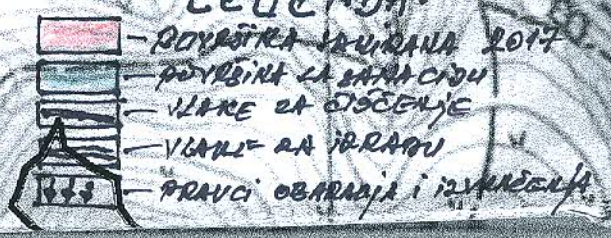 LEGENDA:
- POVRŠINA SANIRANA 2017
- POVRŠINA ZA SANACIJU
- VLAKE ZA ČIŠĆENJE
- VLAKE ZA IZRADU
- PRAVCI OBARANJA I IZVLAČENJA